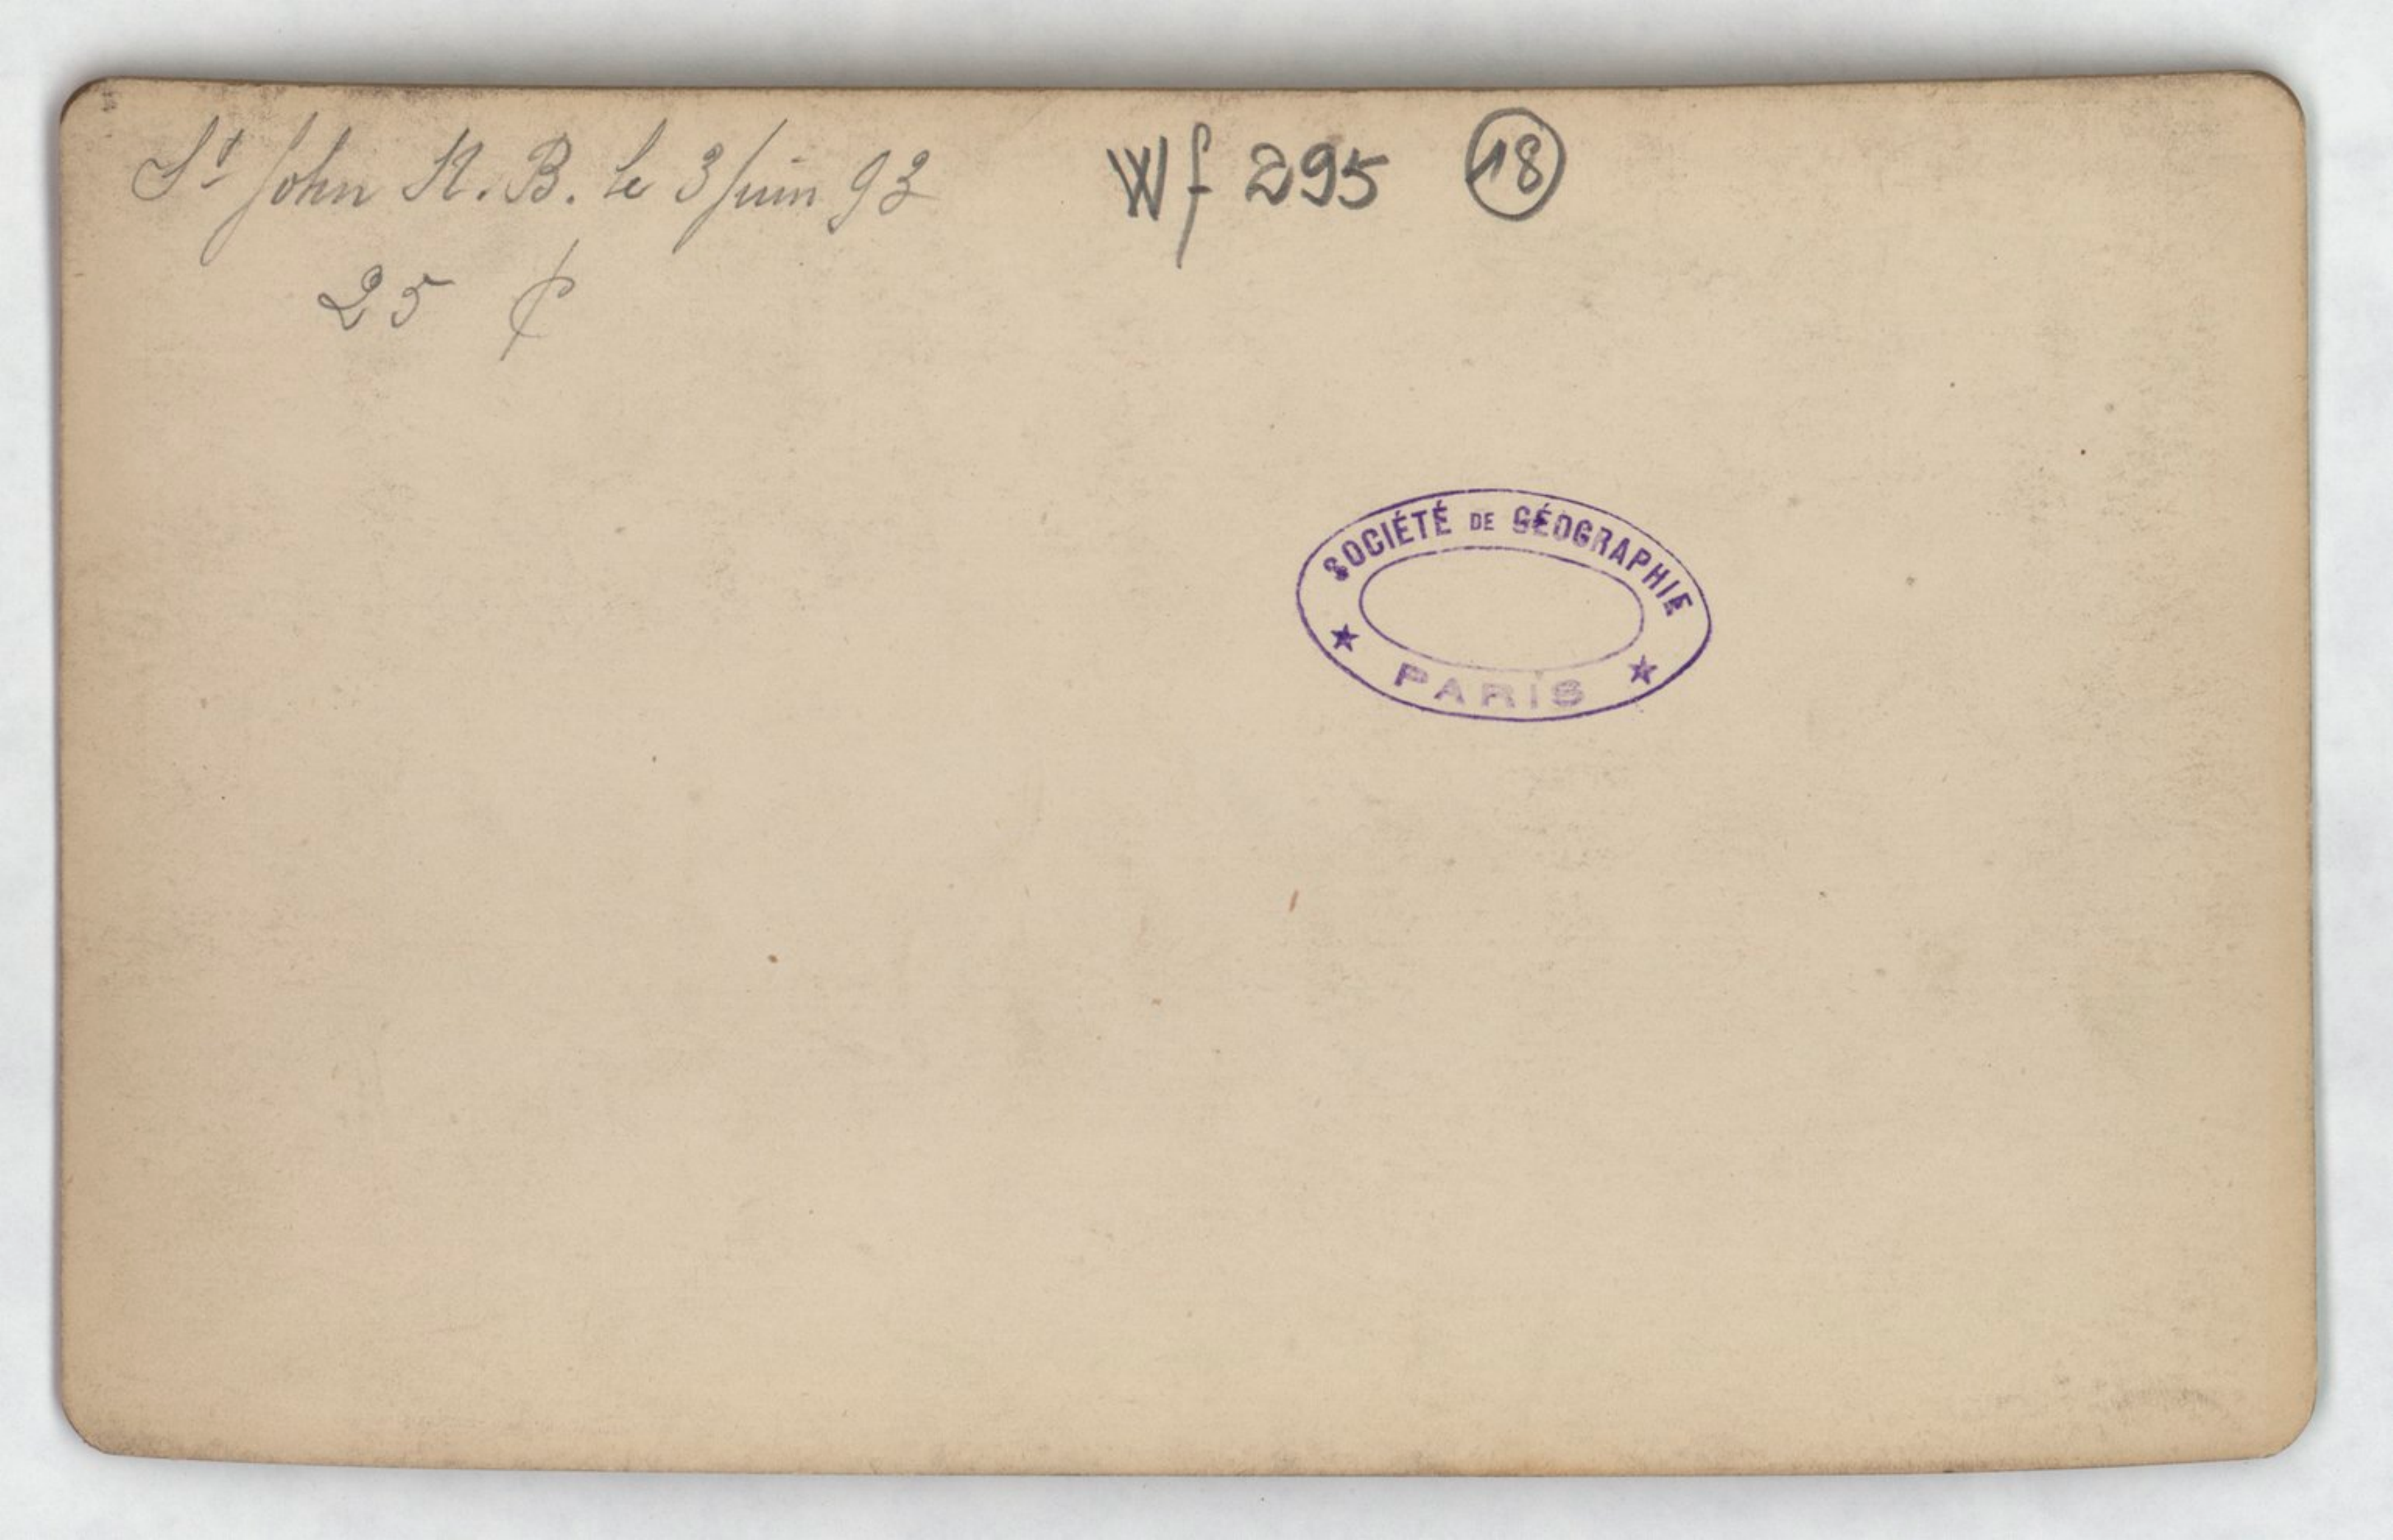 St John N. B. le 3 Juin 93
Wf 295 18
25 ¢
SOCIÉTÉ DE GÉOGRAPHIE
★ PARIS ★